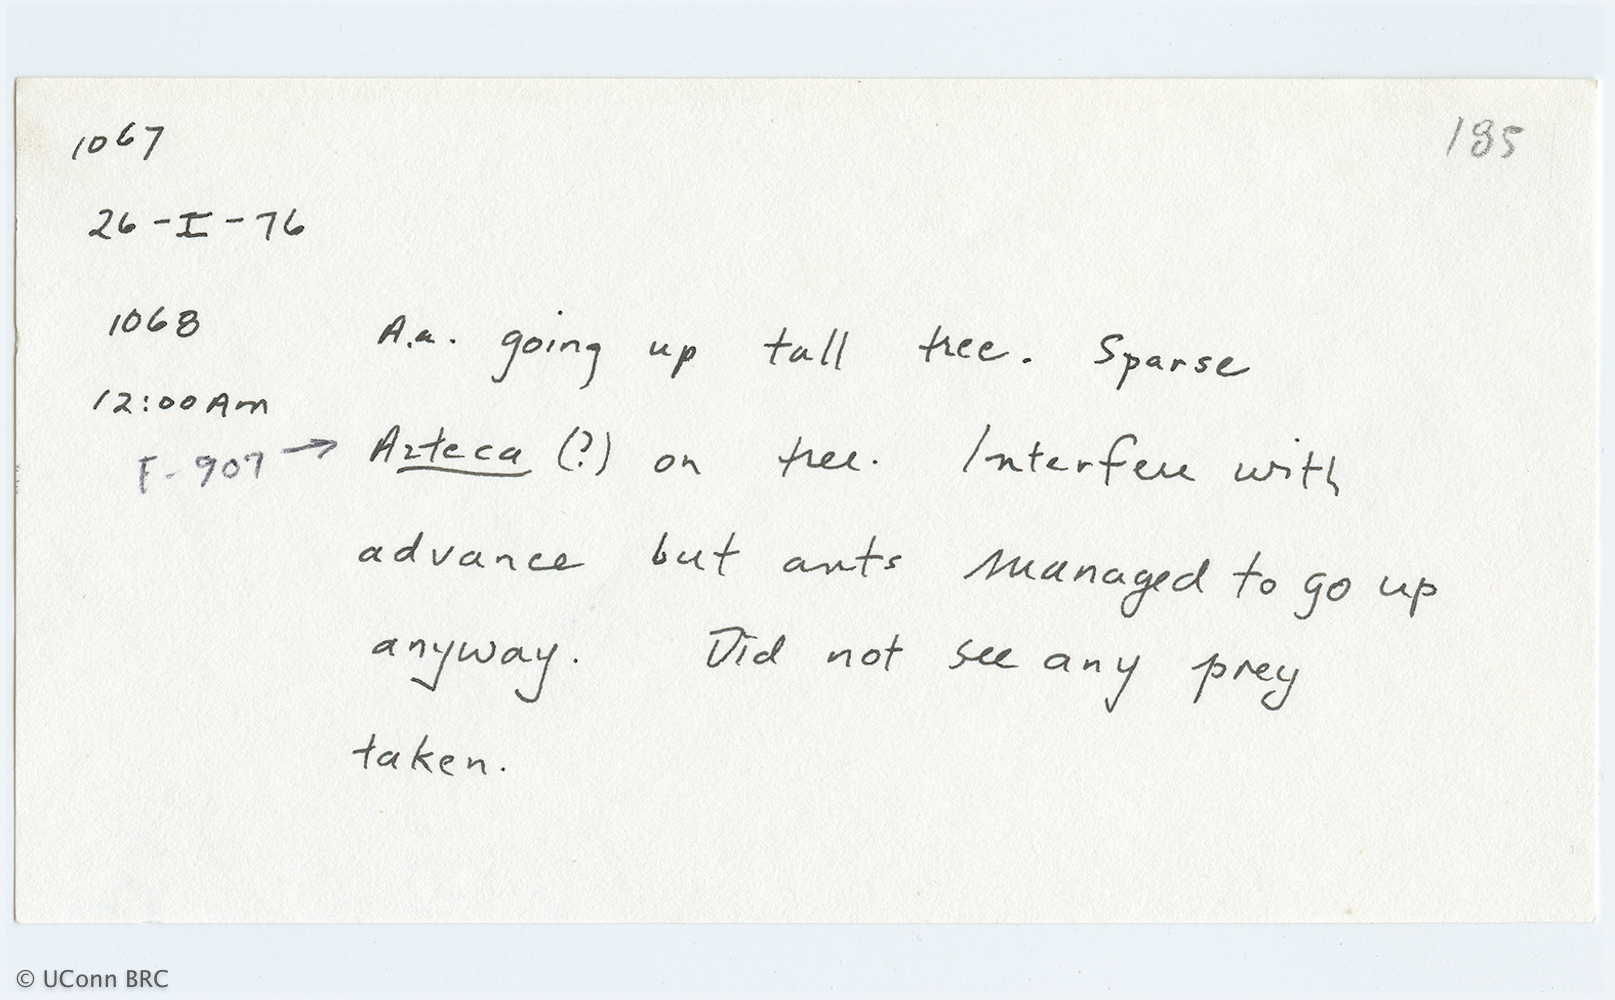 1067
185
26-I-76
1068
A.a. going up tall tree. Sparse
12:00 Am
F-907 → Azteca (?) on tree. Interfere with
advance but ants managed to go up
anyway. Did not see any prey
taken.
© UConn BRC